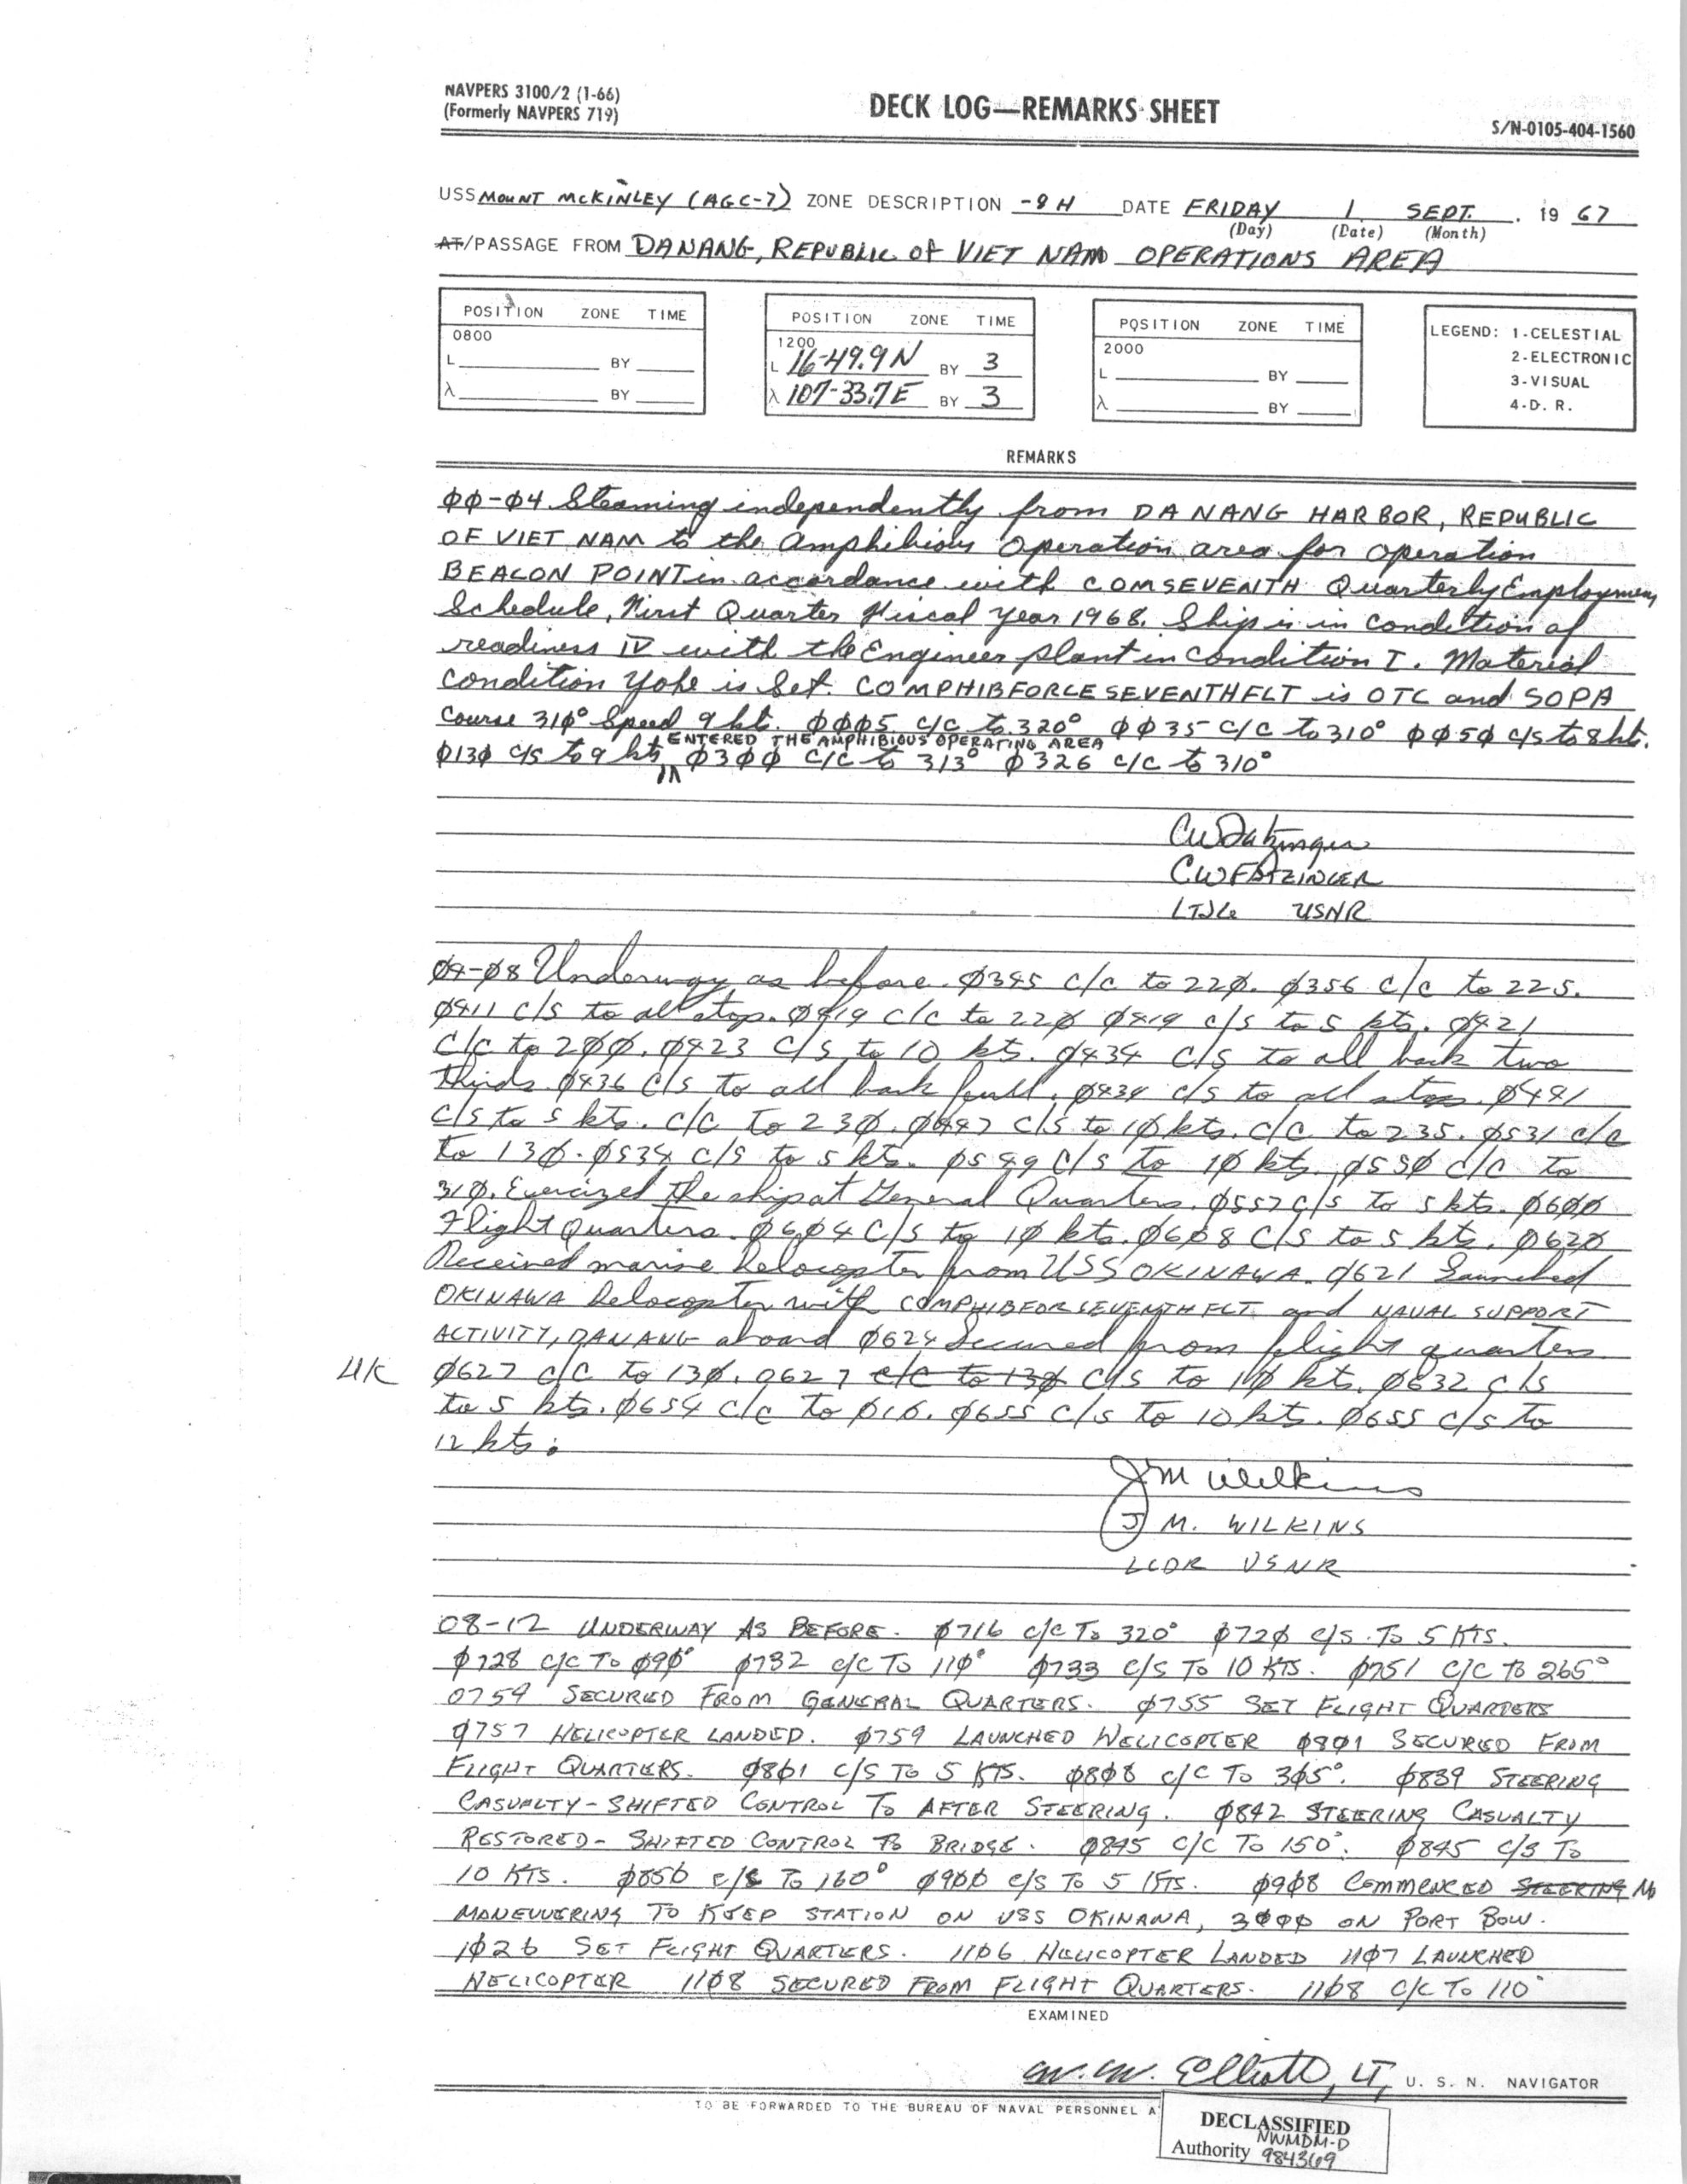 NAVPERS 3100/2 (1-66)
(Formerly NAVPERS 719)
DECK LOG—REMARKS SHEET
S/N-0105-404-1560
USS MOUNT McKINLEY (AGC-7) ZONE DESCRIPTION -8H DATE FRIDAY 1 SEPT. 19 67
(Day) (Date) (Month)
AT/PASSAGE FROM DANANG, REPUBLIC OF VIET NAM OPERATIONS AREA
POSITION ZONE TIME
0800
L BY
λ BY
POSITION ZONE TIME
1200
L 16-49.9N BY 3
λ 107-33.7E BY 3
POSITION ZONE TIME
2000
L BY
λ BY
LEGEND: 1-CELESTIAL
2-ELECTRONIC
3-VISUAL
4-D. R.
REMARKS
00-04 Steaming independently from DANANG HARBOR, REPUBLIC
OF VIET NAM to the Amphibious Operation area for operation
BEACON POINT in accordance with COMSEVENTH Quarterly Employment
Schedule, First Quarter Fiscal Year 1968. Ship is in condition of
readiness IV with the Engineer plant in Condition I. Material
Condition Yoke is Set. COMPHIBFORCESEVENTHFLT is OTC and SOPA
Course 310° Speed 9 kts. 0005 c/c to 320° 0035 c/c to 310° 0050 c/s to 8 kts.
ENTERED THE AMPHIBIOUS OPERATING AREA
0130 c/s to 9 kts 0300 c/c to 313° 0326 c/c to 310°
CW FATZINGER
LTJG USNR
04-08 Underway as before. 0345 c/c to 220. 0356 c/c to 225.
0411 c/s to all stop. 0419 c/c to 220 0419 c/s to 5 kts. 0421
c/c to 200. 0423 c/s to 10 kts. 0434 c/s to all back two
thirds 0436 c/s to all back full. 0439 c/s to all stop. 0441
c/s to 5 kts. c/c to 230. 0447 c/s to 10 kts. c/c to 235. 0531 c/c
to 130. 0534 c/s to 5 kts. 0549 c/s to 10 kts. 0550 c/c to
310. Exercized the ship at General Quarters. 0557 c/s to 5 kts. 0600
Flight quarters. 0604 c/s to 10 kts. 0608 c/s to 5 kts. 0620
Received marine helocopter from USS OKINAWA. 0621 launched
OKINAWA helocopter with COMPHIBFORSEVENTHFLT and NAVAL SUPPORT
ACTIVITY, DANANG aboard 0624 Secured from flight quarters
0627 c/c to 130. 0627 c/c to 130 c/s to 10 kts. 0632 c/s
to 5 kts. 0654 c/c to 010. 0655 c/s to 10 kts. 0655 c/s to
12 kts.
JM Wilkins
J M. WILKINS
LCDR USNR
08-12 UNDERWAY AS BEFORE. 0716 c/c TO 320° 0720 c/s TO 5 KTS.
0728 c/c TO 090° 0732 c/c TO 110° 0733 c/s TO 10 KTS. 0751 c/c TO 265°
0754 SECURED FROM GENERAL QUARTERS. 0755 SET FLIGHT QUARTERS
0757 HELICOPTER LANDED. 0759 LAUNCHED HELICOPTER 0801 SECURED FROM
FLIGHT QUARTERS. 0801 c/s TO 5 KTS. 0808 c/c TO 305°. 0839 STEERING
CASUALTY - SHIFTED CONTROL TO AFTER STEERING. 0842 STEERING CASUALTY
RESTORED - SHIFTED CONTROL TO BRIDGE. 0845 c/c TO 150°. 0845 c/s TO
10 KTS. 0850 c/c TO 160° 0900 c/s TO 5 KTS. 0908 COMMENCED STEERING
MANEUVERING TO KEEP STATION ON USS OKINAWA, 3000 ON PORT BOW.
1026 SET FLIGHT QUARTERS. 1106 HELICOPTER LANDED 1107 LAUNCHED
HELICOPTER 1108 SECURED FROM FLIGHT QUARTERS. 1108 c/c TO 110°
EXAMINED
W. W. Elliott, LT, U. S. N. NAVIGATOR
TO BE FORWARDED TO THE BUREAU OF NAVAL PERSONNEL A
DECLASSIFIED
Authority NWMDM-D
984369